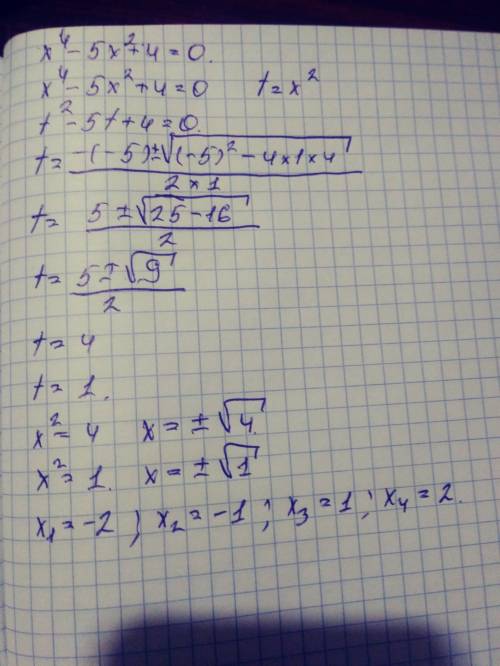 x⁴ - 5x² + 4 = 0.
x⁴ - 5x² + 4 = 0 t = x²
t² - 5t + 4 = 0.
t = (-(-5) ± √((-5)² - 4×1×4)) / (2×1)
t = (5 ± √(25 - 16)) / 2
t = (5 ± √9) / 2
t = 4
t = 1.
x² = 4 x = ± √4.
x² = 1. x = ± √1
x₁ = -2 ; x₂ = -1 ; x₃ = 1 ; x₄ = 2.